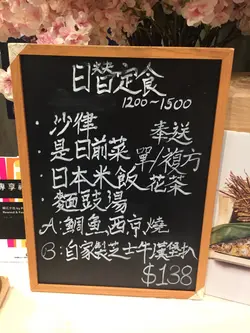 日替定食
1200~1500
・沙律
・是日前菜
・日本米飯
・麵豉湯
奉送
單/複方
花茶
A:鯛魚西京燒
B:自家製芝士牛漢堡扒
$138
專享